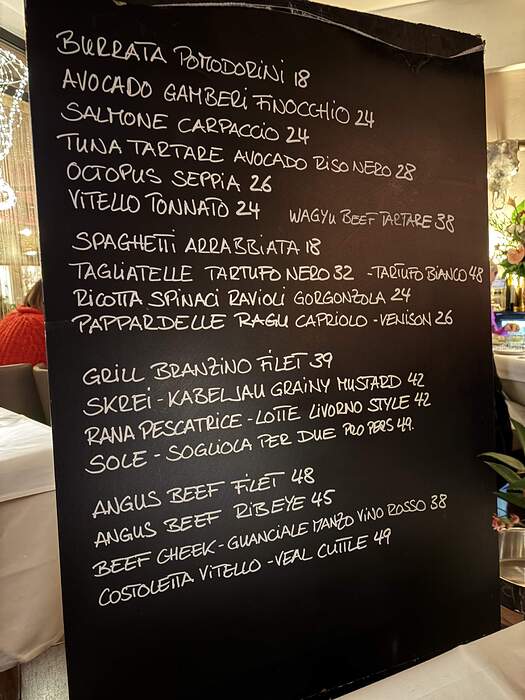 BURRATA POMODORINI 18
AVOCADO GAMBERI FINOCCHIO 24
SALMONE CARPACCIO 24
TUNA TARTARE AVOCADO RISO NERO 28
OCTOPUS SEPPIA 26
VITELLO TONNATO 24 WAGYU BEEF TARTARE 38
SPAGHETTI ARRABBIATA 18
TAGLIATELLE TARTUFO NERO 32 - TARTUFO BIANCO 48
RICOTTA SPINACI RAVIOLI GORGONZOLA 24
PAPPARDELLE RAGU CAPRIOLO - VENISON 26
GRILL BRANZINO FILET 39
SKREI - KABELJAU GRAINY MUSTARD 42
RANA PESCATRICE - LOTTE LIVORNO STYLE 42
SOLE - SOGLIOLA PER DUE PRO PERS 49.
ANGUS BEEF FILET 48
ANGUS BEEF RIBEYE 45
BEEF CHEEK - GUANCIALE MANZO VINO ROSSO 38
COSTOLETTA VITELLO - VEAL CUTTLE 49